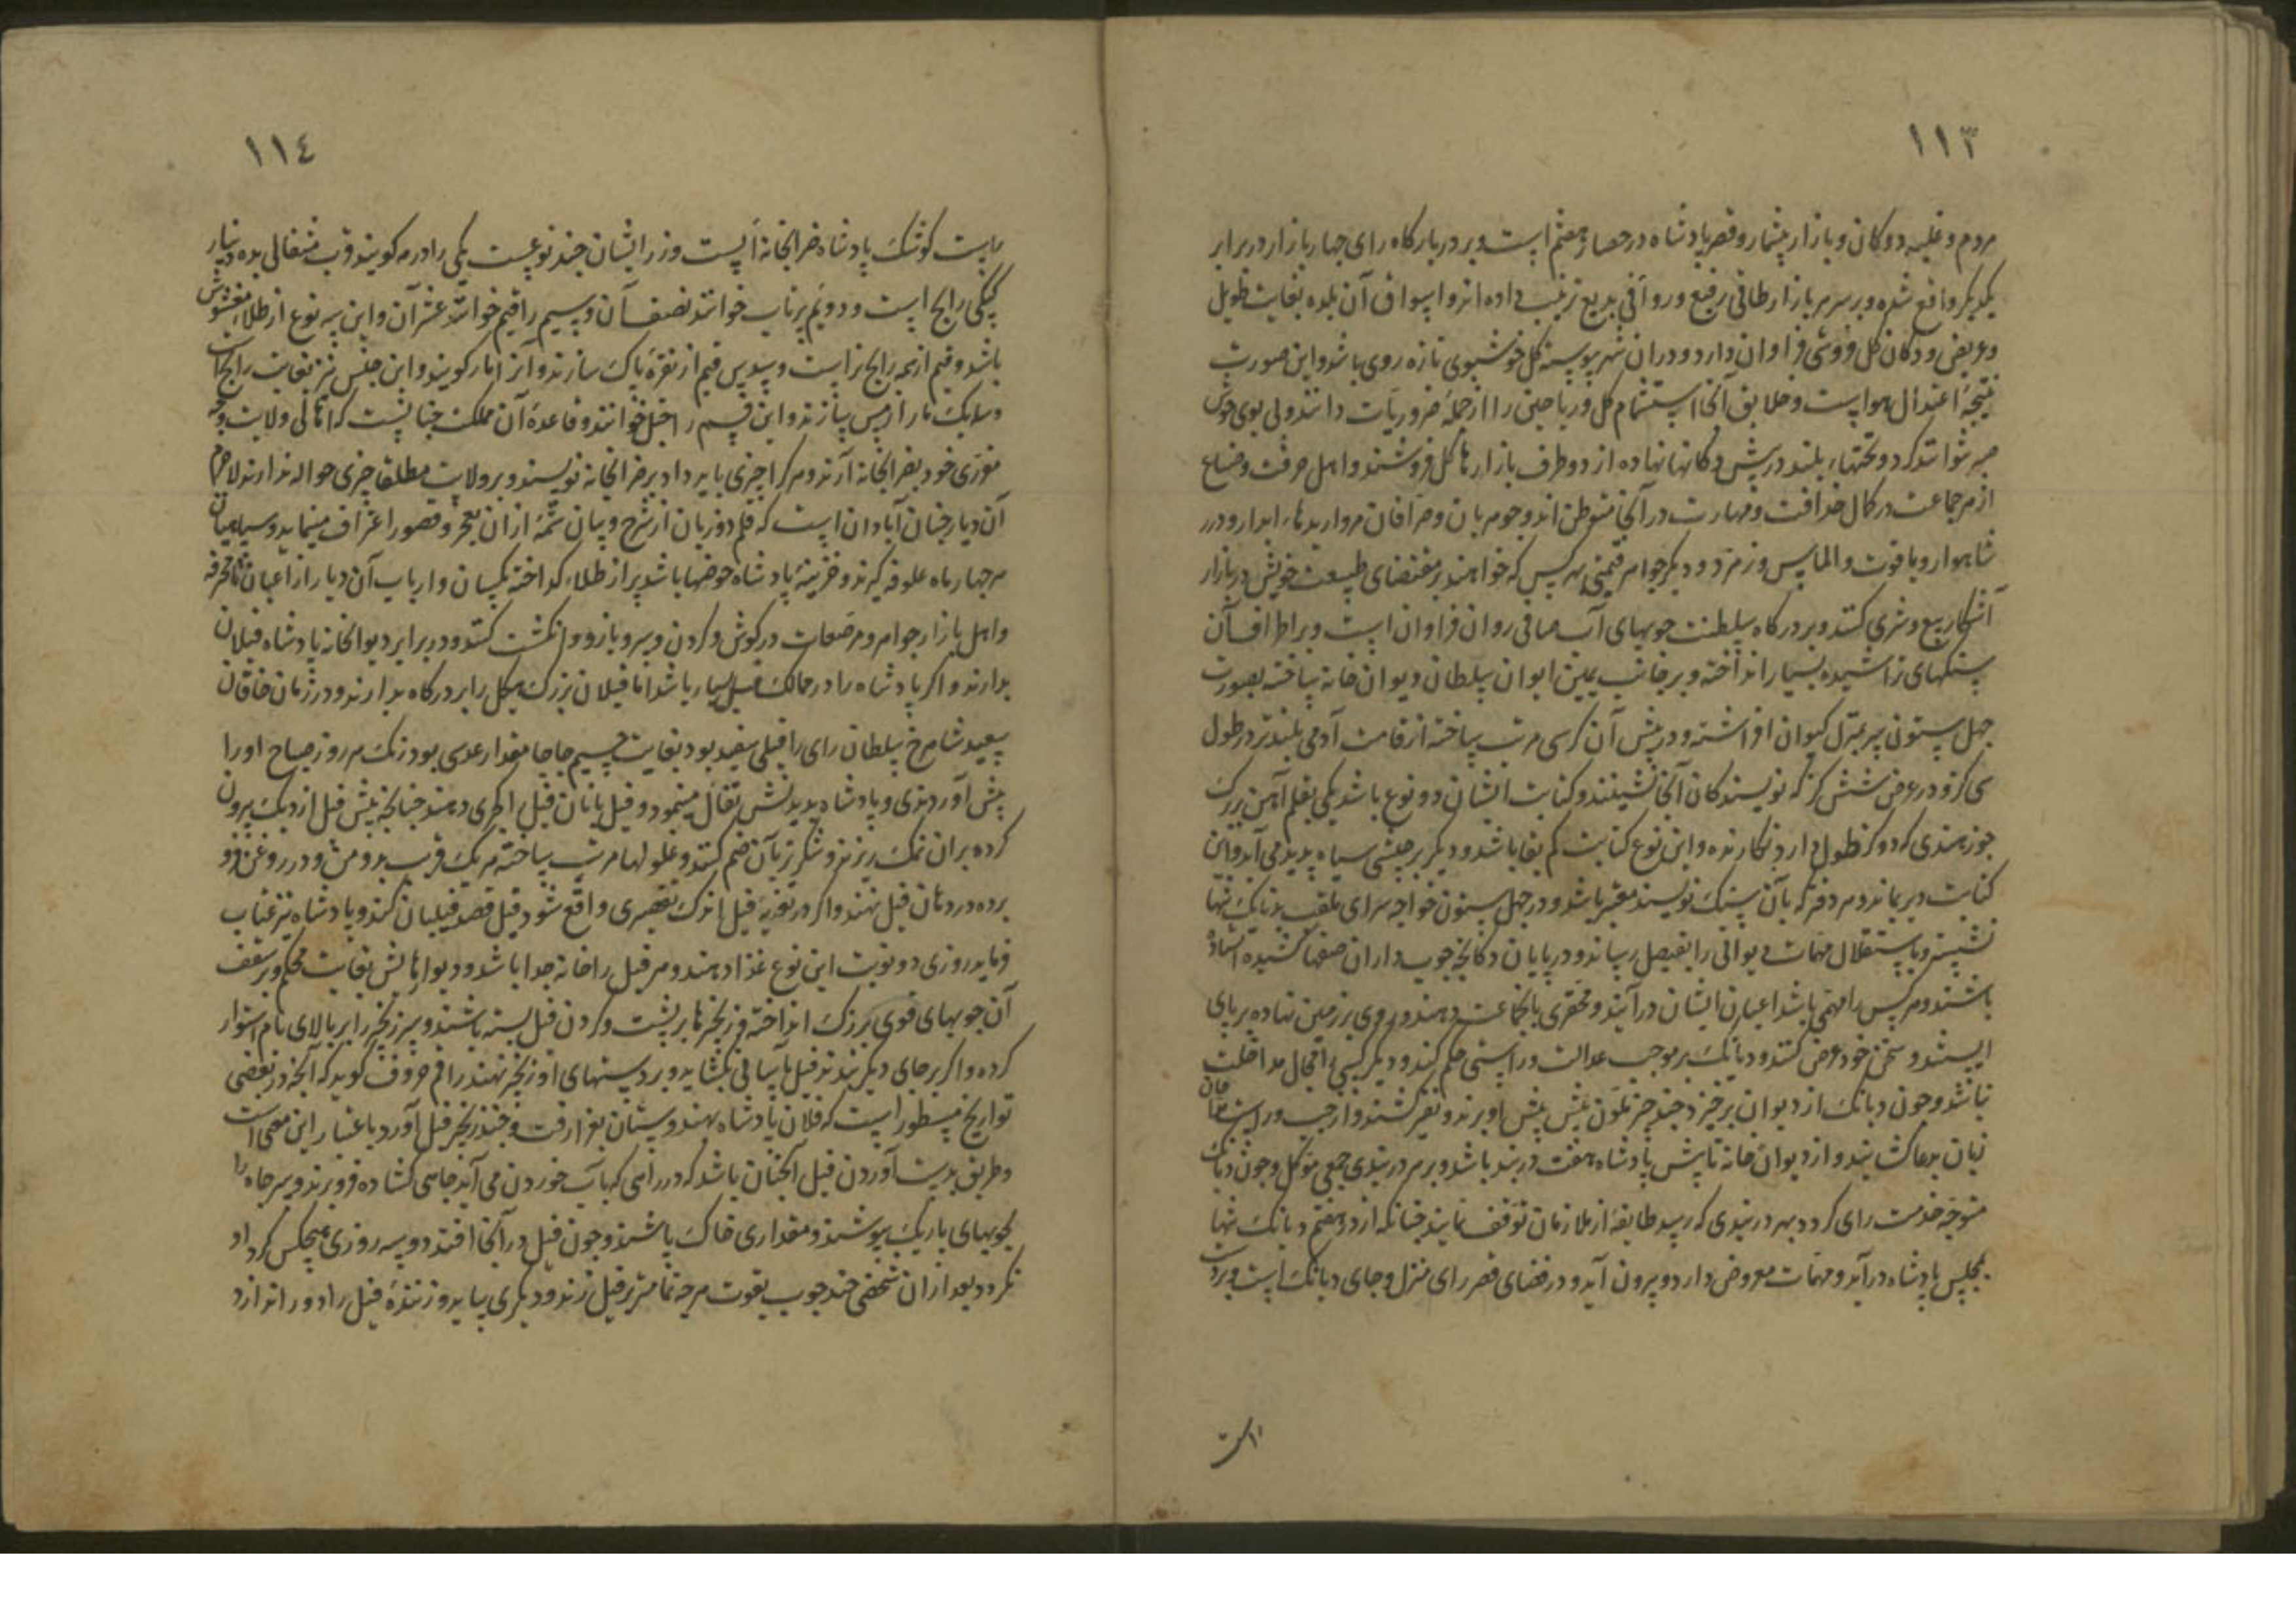 ۱۱۳
مردم و غلبه دوکان و بازار بیشمار و قصر پادشاه در حصار هفتم است و بر در بارگاه رای چهار بازار در برابر
یکدیگر واقع شده و بر سر هر بازار طاقی رفیع و رواقی بدیع ترتیب داده اند و اسواق آن بلده بغایت طویل
و عریض و دکان گل فروشی فراوان دارد و در ان شهر پیوسته گل خوشبوی تازه روی باشد و این صورت
نتیجهٔ اعتدال هواست و خلایق آنجا استشمام گل و ریاحین را از جملهٔ ضروریات دانند و بی بوی خوش
صبر نتوانند کرد و تختها بلند در پیش دکانها نهاده از دو طرف بازارها گل فروشند و اهل حرفت و صناع
از هر جماعت در کمال حذاقت و مهارت در آنجا متوطن اند و جوهریان و صرافان مرواریدها ابدار و درر
شاهوار و یاقوت و الماس و زمرد و دیگر جواهر قیمتی بهر کس که خواهند بر مقتضای طبیعت خویش در بازار
آشکار بیع و شری کنند و بر درگاه سلطنت جویهای آب صافی روان فراوان است و بر اطراف آن
سنگهای تراشیده بسیار انداخته و بر جانب یمین ایوان سلطان دیوان خانه ساخته بصورت
چهل ستون سر بمنزل کیوان افراشته و در پیش آن کرسی مرتب ساخته از قامت آدمی بلندتر در طول
سی گز و در عرض شش گز که نویسندکان آنجا نشینند و کتابت ایشان دو نوع باشد یکی بقلم آهن بر برک
جوز هندی که دو گز طول دارد نگارنده و این نوع کتابت کم بقا باشد و دیگر بر جنسی سیاه پدید می آید و این
کتابت دیر بماند و هر دفتر که بآن سنگ نویسند معتبر باشد و در چهل ستون خواجه سرای ملقب بدنایک تنها
نشیند و باستقلال مهمات دیوانی را بفیصل رساند و در پایان دکانچه چوب داران صفها کشیده استاده
باشند و هر کس را مهمی باشد اعیان ایشان در آیند و محقری بانجماعت دهند و روی بر زمین نهاده بر پای
ایستند و سخن خود عرض کنند و دیانک بر موجب عدالت و راستی حکم کند و دیگر کسی را مجال مداخلت
نباشد و چون دیانک از دیوان برخیزد چند چتر ملون پیش پیش او برند و نفیر کشند و از چپ و راست مداحان
زبان بدعا کشایند و از دیوان خانه تا پیش پادشاه هفت در بند باشد و بر هر در بندی جمعی موکل و چون دیانک
متوجه خدمت رای گردد بهر در بندی که رسد طایفه از ملازمان توقف نمایند چنانکه از در هفتم دیانک تنها
بمجلس پادشاه در آید و مهمات معروض دارد و بیرون آید و در فضای قصر رای منزل و جای دیانک است و بر دست
راست
۱۱٤
راست کوشک پادشاه ضرابخانه است و زر ایشان چند نوعست یکی را درهه کویند قریب مثقالی بده دینار
کپکی رایج است و دویم پرتاب خوانند نصف آن و سیم را فنم خوانند عشر آن و این سه نوع از طلاء مغشوش
باشد و فنم از همه رایج تر است و سدس فنم از نقرهٔ پاک سازند و آنرا تار کویند و این جنس نیز بغایت رایج است
و سه یک تار از مس سازند و این قسم را جتل خوانند و قاعدهٔ آن مملکت چنانست که اهالی ولایت وجه
مقرری خود بضرابخانه آرند و هر کرا چیزی باید داد بر ضرابخانه نویسند و بر ولایت مطلقا چیزی حواله ندارند لاجرم
آن دیار چنان آبادان است که قلم دو زبان از شرح و بیان شمهٔ از ان بعجز و قصور اعتراف مینماید و سپاهیان
هر چهار ماه علوفه گیرند و خزینهٔ پادشاه حوضها باشد پر از طلاء گداخته یکسان و ارباب آن دیار از اعیان تا محترفه
و اهل بازار جواهر و مرصعات در گوش و گردن و سر و بازو و انگشت کنند و در برابر دیوانخانه پادشاه فیلان
بدارند و اگر پادشاه را در ممالک فیل بسیار باشد اما فیلان بزرک هیکل را بر درگاه بدارند و در زمان خاقان
سعید شاهرخ سلطان رای را فیلی سفید بود بغایت جسیم جابجا مقدار عدسی بود زنک هر روز صباح او را
پیش آوردندی و پادشاه بدیدنش تفال مینمود و فیل بانان فیل را کجری دهند چنانچه پیش فیل از دیک بیرون
کرده بران نمک ریزند و شکر تر بآن ضم کنند و غلولها مرتب ساخته هر یک قریب بدو من و در روغن فرو
برده در دهان فیل نهند و اگر در تعزیهٔ فیل اندک تقصیری واقع شود فیل قصد فیلبان کند و پادشاه نیز عتاب
فرماید روزی دو نوبت این نوع غذا دهند و هر فیل را خانه جدا باشد و دیوارهایش بغایت محکم و بر سقف
آن چوبهای قوی بزرک انداخته و زنجیرها بر پشت و گردن فیل بسته باشند و سر زنجیر را بر بالای بام استوار
کرده و اگر بر جای دیگر بندند فیل باسانی بکشاید و بر دستهای او زنجیر نهند راقم حروف کوید که آنچه در بعضی
تواریخ مسطور است که فلان پادشاه بهندوستان بغزا رفت و چند زنجیر فیل آورد باعتبار این معنی است
و طریق بدست آوردن فیل آنچنان باشد که در راهی که بآب خوردن می آید چاهی کشاده فرو برند و سر چاه را
بچوبهای باریک بپوشند و مقداری خاک پاشند و چون فیل در آنجا افتد دو سه روزی هیچکس گرد او
نگردد بعد از ان شخصی چند چوب بقوت هر چه تمامتر بر فیل زند و دیگری بیاید و زنندهٔ فیل را دور اندازد